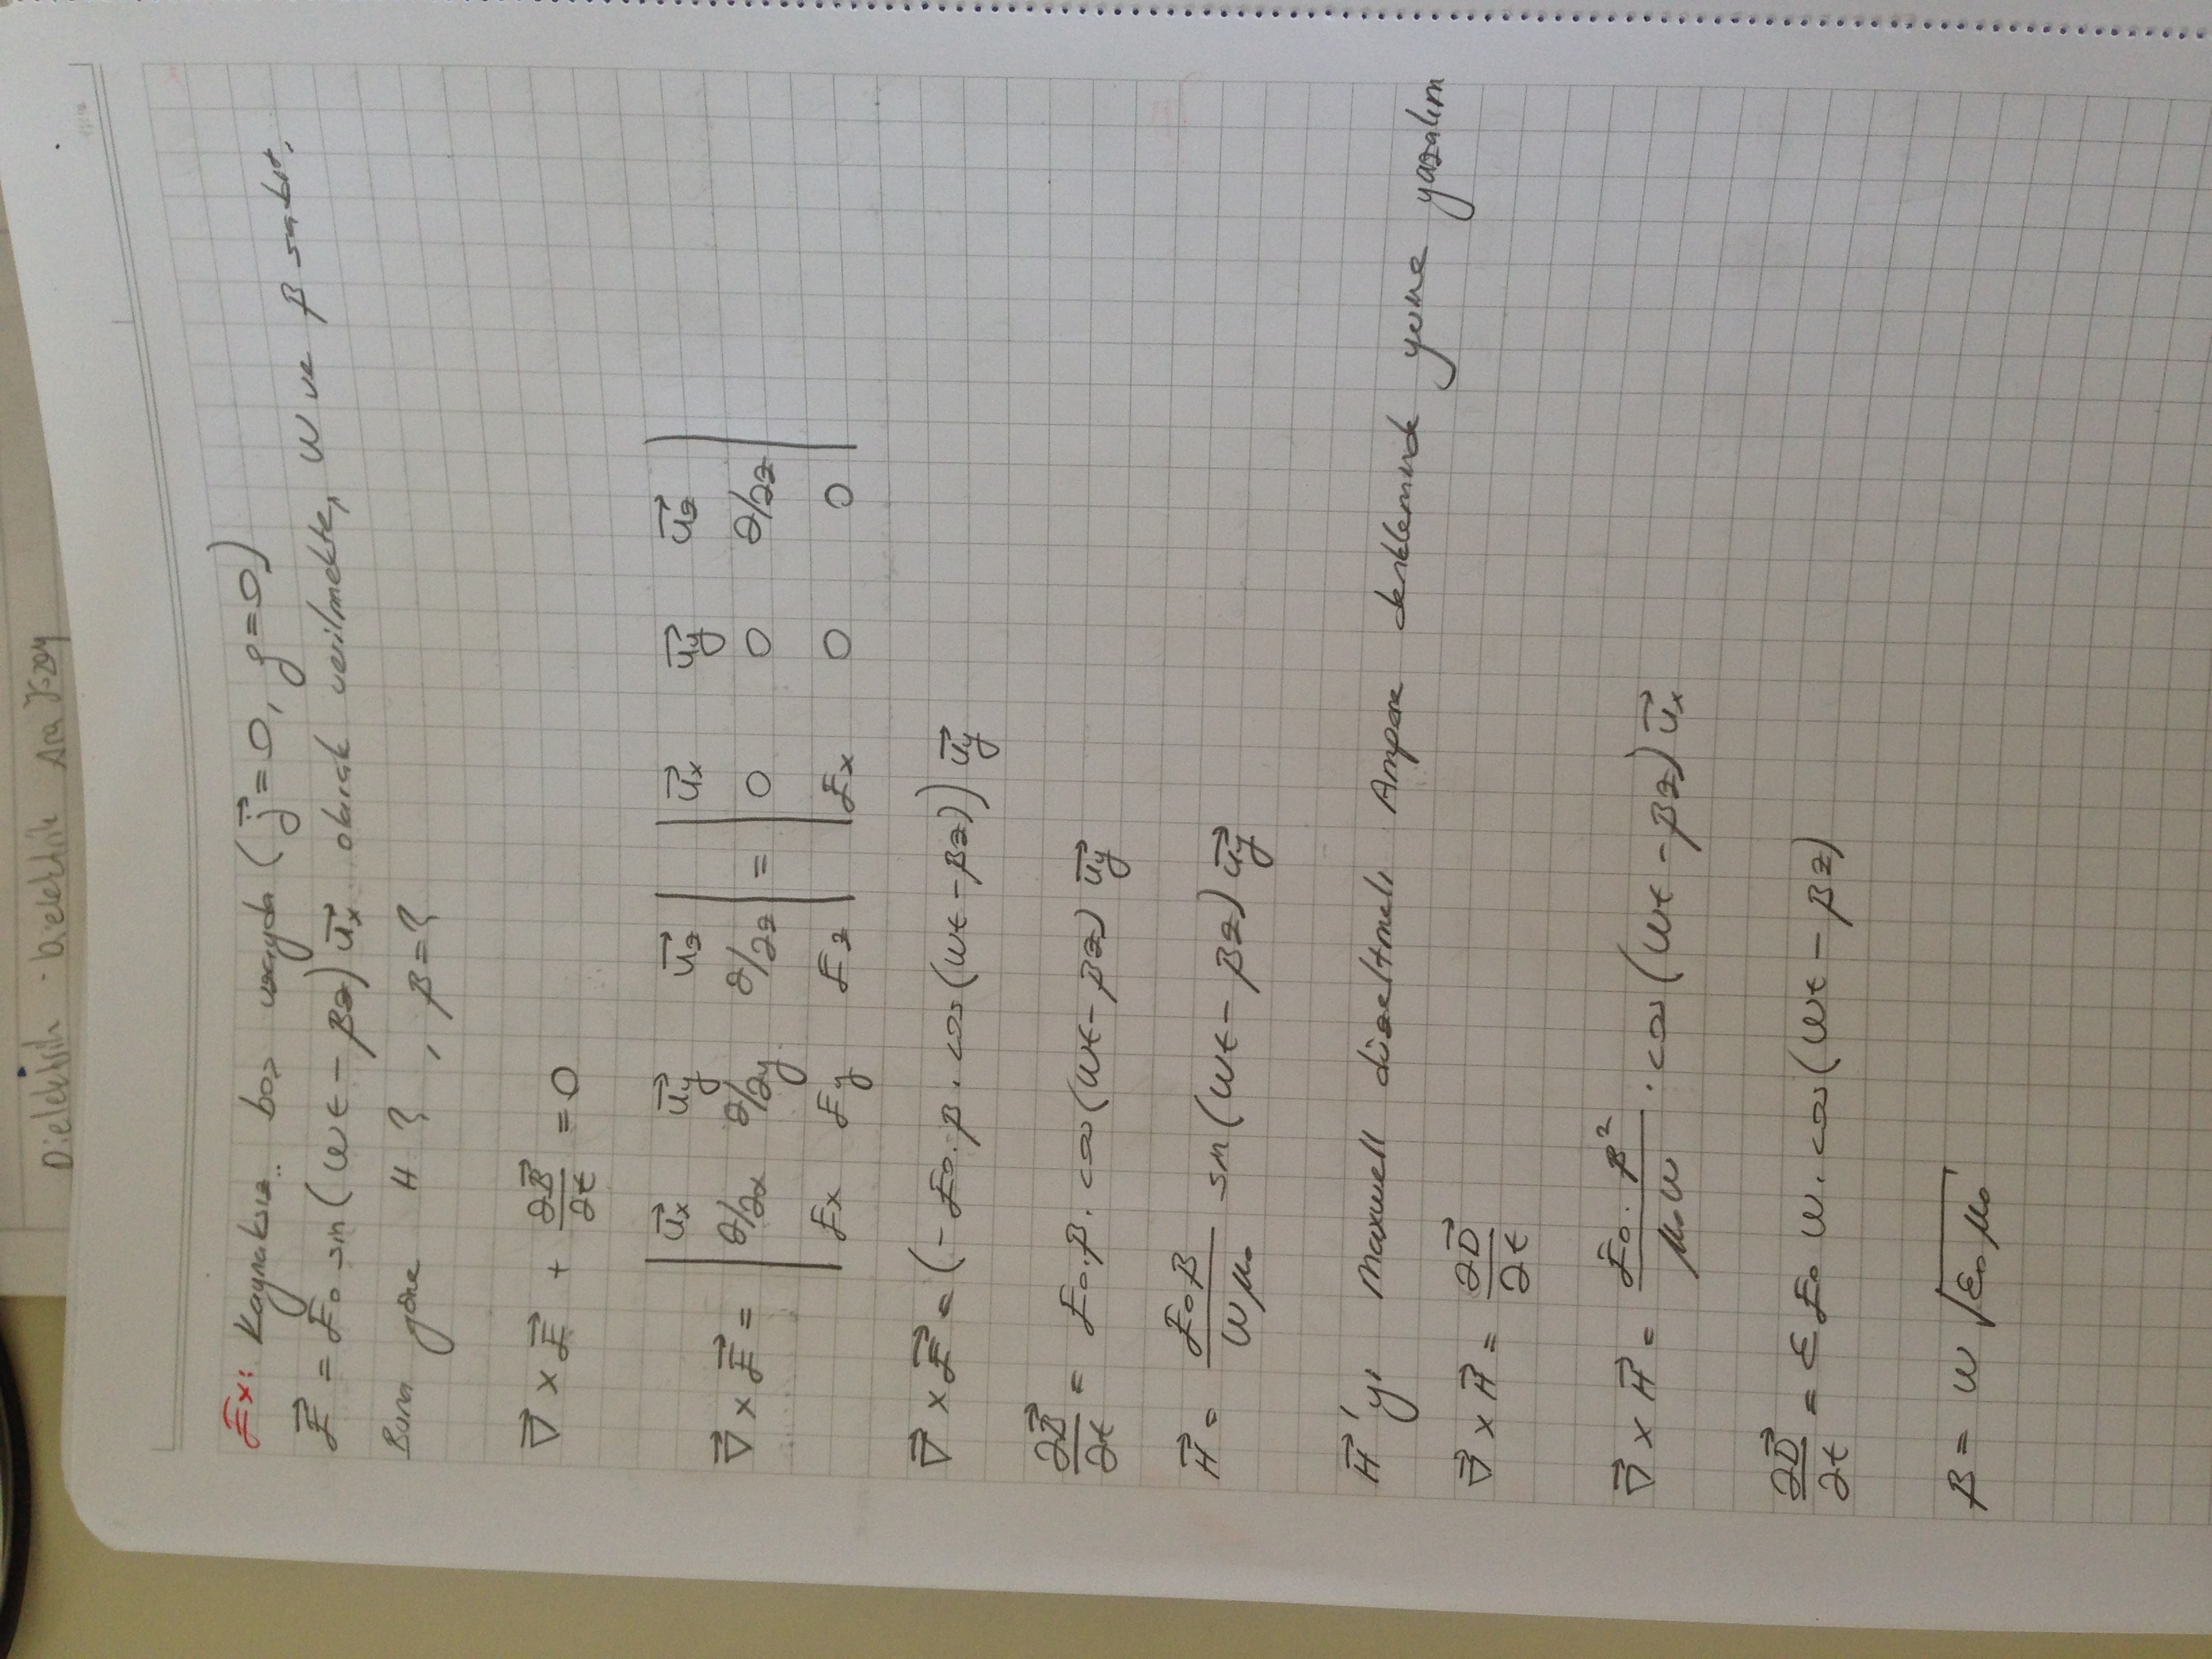 Dielektrik - Dielektrik Ara Yüzey
Ex: Kaynaksız boş uzayda (j⃗=0, ρ=0)
E⃗ = E₀ sin(ωt - βz) u⃗x olarak verilmekte, ω ve β sabit.
Buna göre H ? , β=?
∇⃗ × E⃗ + ∂B⃗/∂t = 0
∇⃗ × E⃗ = | u⃗x u⃗y u⃗z | = | u⃗x u⃗y u⃗z |
| ∂/∂x ∂/∂y ∂/∂z | | 0 0 ∂/∂z |
| Ex Ey Ez | | Ex 0 0 |
∇⃗ × E⃗ = (- E₀.β . cos(ωt - βz)) u⃗y
∂B⃗/∂t = E₀.β. cos(ωt - βz) u⃗y
H⃗ = E₀β/ωμ₀ sin(ωt - βz) u⃗y
H⃗'yi Maxwell düzeltmeli Ampere denkleminde yerine yazalım
∇⃗ × H⃗ = ∂D⃗/∂t
∇⃗ × H⃗ = E₀.β²/μ₀ω . cos(ωt - βz) u⃗x
∂D⃗/∂t = ε E₀ ω. cos(ωt - βz)
β = ω √ε₀μ₀